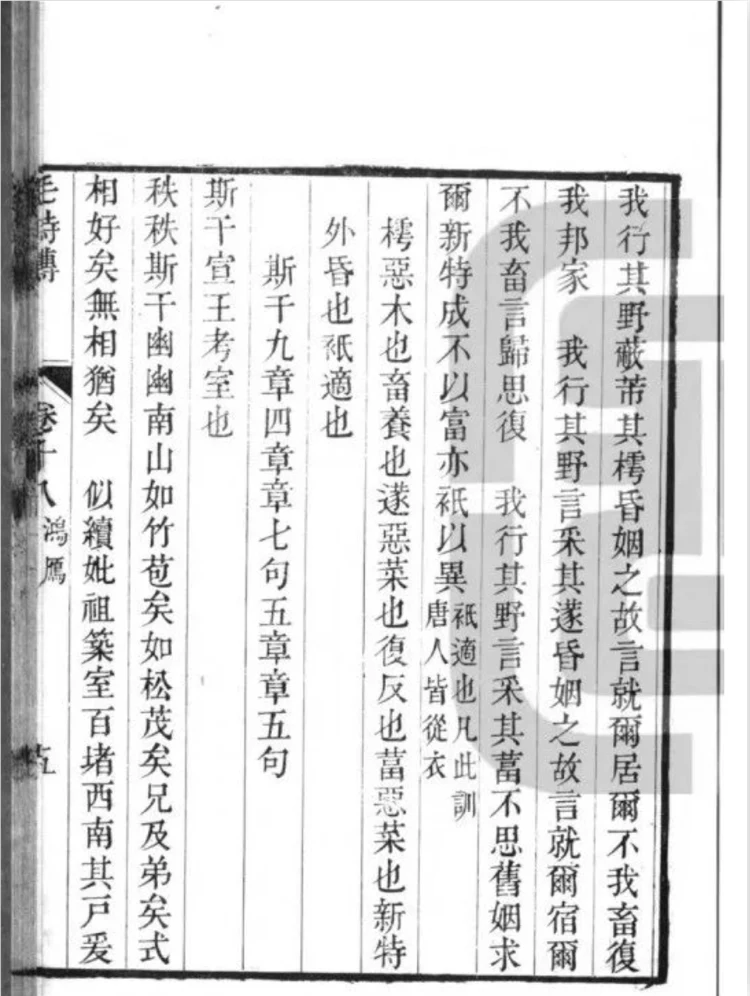 我行其野蔽芾其樗昏姻之故言就爾居爾不我畜復
我邦家　我行其野言采其蓫昏姻之故言就爾宿爾
不我畜言歸思復　我行其野言采其葍不思舊姻求
爾新特成不以富亦祇以異祇適也凡此訓
唐人皆從衣
樗惡木也畜養也蓫惡菜也復反也葍惡菜也新特
外昏也祇適也
斯干九章四章章七句五章章五句
斯干宣王考室也
秩秩斯干幽幽南山如竹苞矣如松茂矣兄及弟矣式
相好矣無相猶矣　似續妣祖築室百堵西南其戶爰
毛詩傳　卷十八　鴻鴈